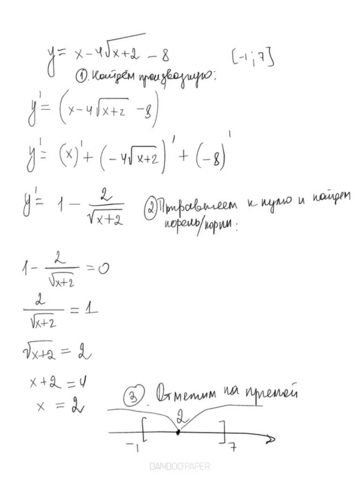 y = x - 4√x+2 - 8 [-1; 7]
① Найдём производную:
y' = (x - 4√x+2 - 8)
y' = (x)' + (-4√x+2)' + (-8)'
y' = 1 - 2/√x+2 ② Приравняем к нулю и найдём
корень/корни:
1 - 2/√x+2 = 0
2/√x+2 = 1
√x+2 = 2
x+2 = 4
x = 2
③. Отметим на прямой
2
-1 [ ] 7
DAMODOPAPER